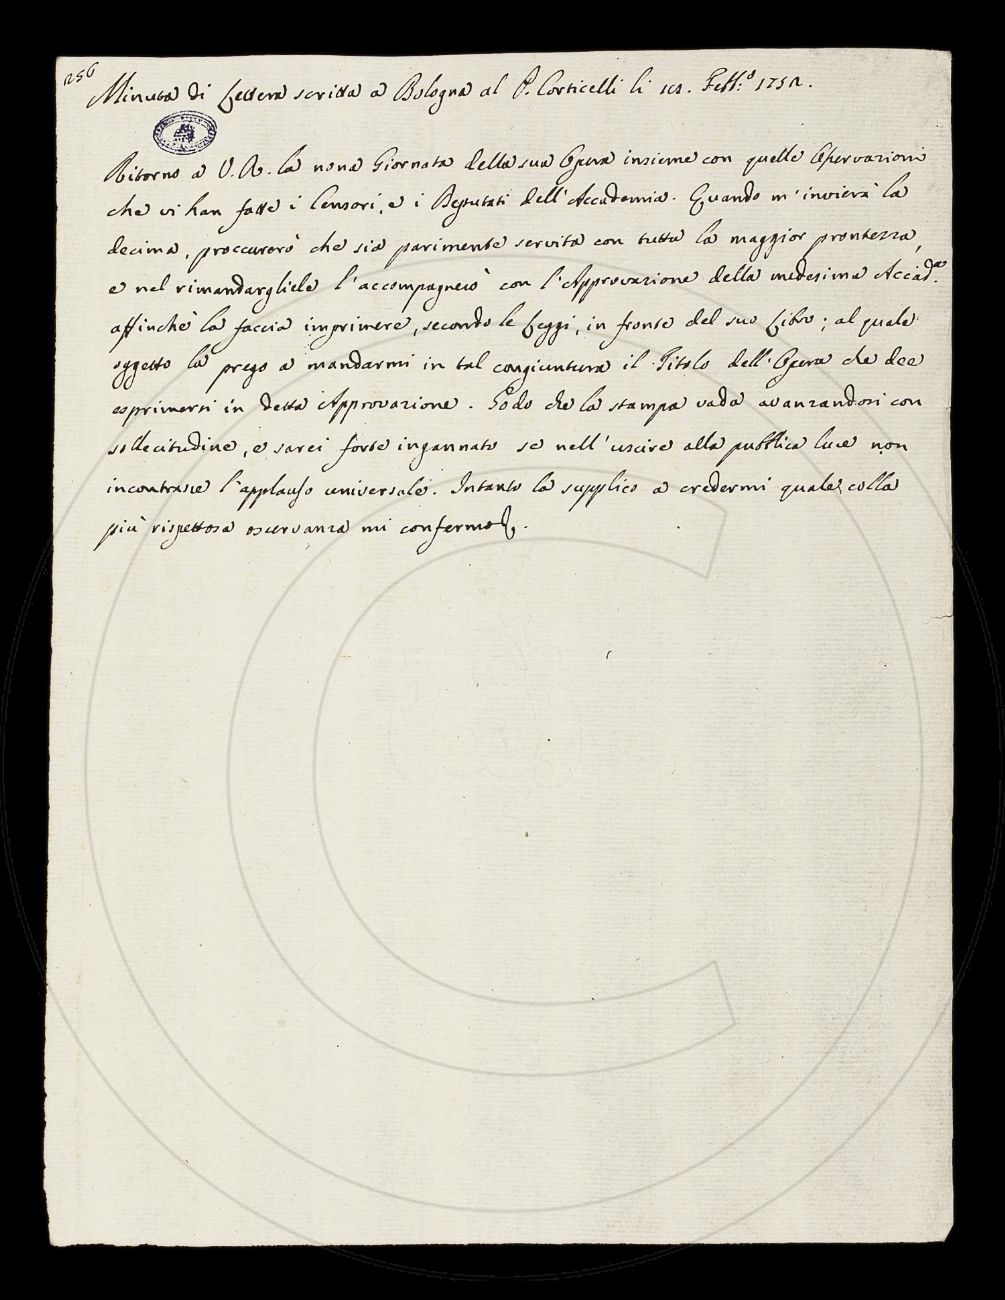 256
Minuta di Lettera scritta a Bologna al P. Corticelli li Febb.o 1752.
Ritorno a V. R. la nona Giornata della sua Opera insieme con quelle Osservazioni
che vi han fatte i Censori, e i Deputati dell'Accademia. Quando m'invierà la
decima, proccurerò che sia parimente servita con tutta la maggior prontezza,
e nel rimandargliele l'accompagnerò con l'Approvazione della medesima Accad.a
affinchè la faccia imprimere, secondo le Leggi, in fronte del suo Libro; al quale
oggetto la prego a mandarmi in tal congiuntura il Titolo dell'Opera che dee
esprimersi in detta Approvazione. Godo che la stampa vada avanzandosi con
sollecitudine, e sarei forte ingannato se nell'uscire alla pubblica luce non
incontrasse l'applauso universale. Intanto la supplico a credermi quale colla
più rispettosa osservanza mi confermo